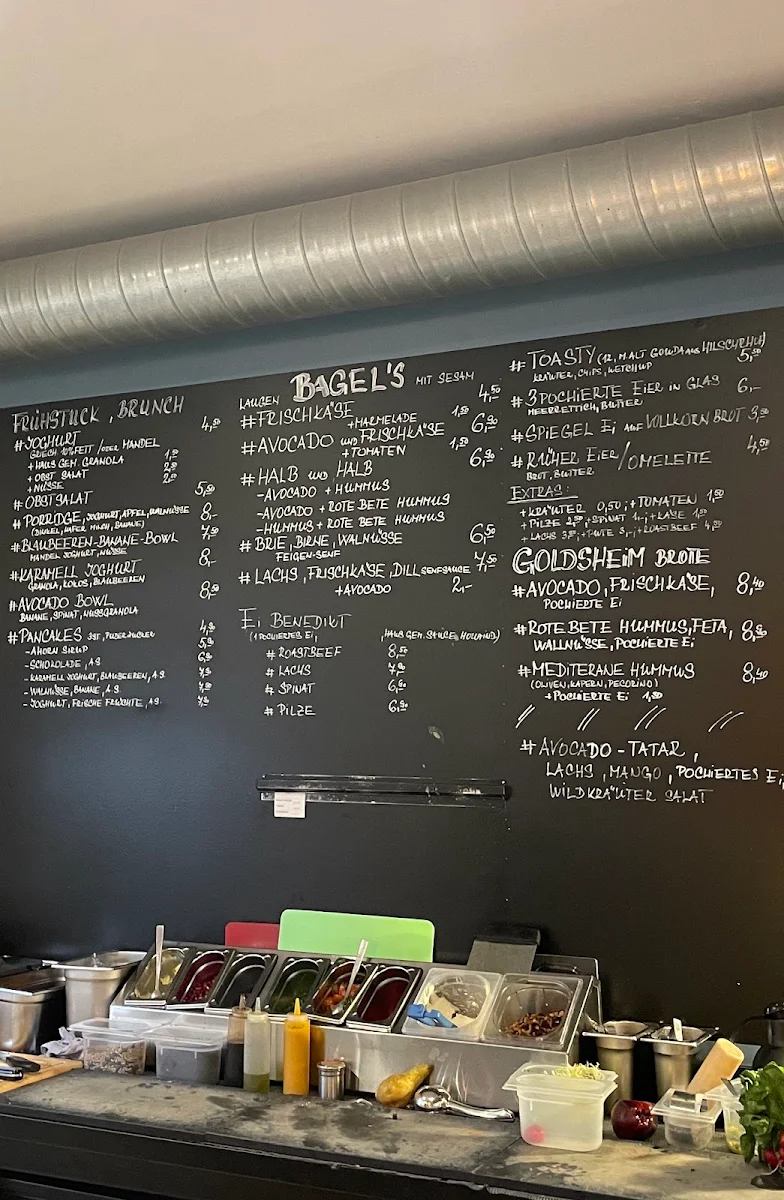 FRÜHSTÜCK, BRUNCH
#JOGHURT 4,50
GRIECH. 10% FETT / ODER MANDEL
+ HAUS GEM. GRANOLA 1,50
+ OBST SALAT
+ NÜSSE
#OBSTSALAT 5,50
#PORRIDGE, JOGHURT, APFEL, WALNÜSSE 8,-
(DINKEL, HAFER MILCH, BANANE)
#BLAUBEEREN-BANANE-BOWL 7,50
MANDEL JOGHURT, NÜSSE
#KARAMELL JOGHURT 8,-
GRANOLA, KOKOS, BLAUBEEREN
#AVOCADO BOWL 8,50
BANANE, SPINAT, NUSSGRANOLA
#PANCAKES 3ST, PUDERZUCKER
-AHORN SIRUP
-SCHOKOLADE, A.S.
-KARAMELL JOGHURT, BLAUBEEREN, A.S.
-WALNÜSSE, BANANE, A.S.
-JOGHURT, FRISCHE FRÜCHTE, A.S.
LAUGEN BAGEL'S MIT SESAM
#FRISCHKÄSE 4,50
+MARMELADE 1,50
#AVOCADO UND FRISCHKÄSE 6,90
+TOMATEN 1,50
#HALB UND HALB 6,90
-AVOCADO + HUMMUS
-AVOCADO + ROTE BETE HUMMUS
-HUMMUS + ROTE BETE HUMMUS
#BRIE, BIRNE, WALNÜSSE 6,50
FEIGEN-SENF
#LACHS, FRISCHKÄSE, DILLSENFSAUCE 7,50
+AVOCADO 2,-
EI BENEDIKT
(1 POCHIERTES EI, HAUS GEM. SAUCE HOLLAND)
#ROASTBEEF 8,50
#LACHS 7,90
#SPINAT 6,50
#PILZE 6,90
#TOASTY (12 M.ALT GOUDA AUS HILSCHRUH) 5,50
KRÄUTER, CHIPS, KETCHUP
#3 POCHIERTE EIER IN GLAS 6,-
MEERRETTICH, BUTTER
#SPIEGEL EI AUF VOLLKORN BROT 3,50
#RÜHER EIER/OMELETTE 4,50
BROT, BUTTER
EXTRAS:
+KRÄUTER 0,50; +TOMATEN 1,50
+PILZE 2,50 +SPINAT 1,-; +KÄSE 1,50
+LACHS 3,50; +PUTE 3,-; +ROASTBEEF 4,50
GOLDSHEIM BROTE
#AVOCADO, FRISCHKÄSE, 8,40
POCHIERTE EI
#ROTE BETE HUMMUS, FETA, 8,90
WALNÜSSE, POCHIERTE EI
#MEDITERANE HUMMUS 8,40
(OLIVEN, KAPERN, PECORINO)
+POCHIERTE EI 1,50
#AVOCADO-TATAR,
LACHS, MANGO, POCHIERTES EI,
WILDKRÄUTER SALAT